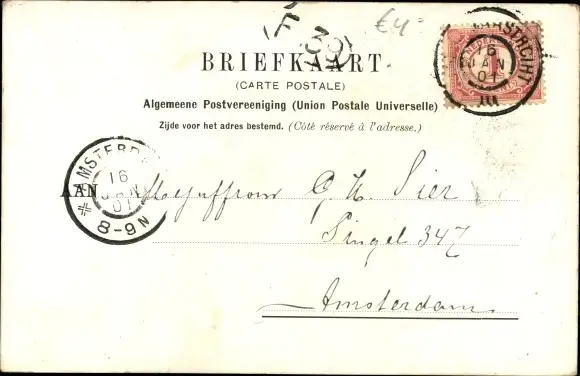 F 39
€4
BRIEFKAART
(CARTE POSTALE)
Algemeene Postvereeniging (Union Postale Universelle)
Zijde voor het adres bestemd. (Côté réservé à l'adresse.)
MAASTRICHT
16
JAN
01
III
AMSTERD
16
JAN
01
8-9N
AAN Mejuffrouw G. H. Sier
Singel 347
Amsterdam